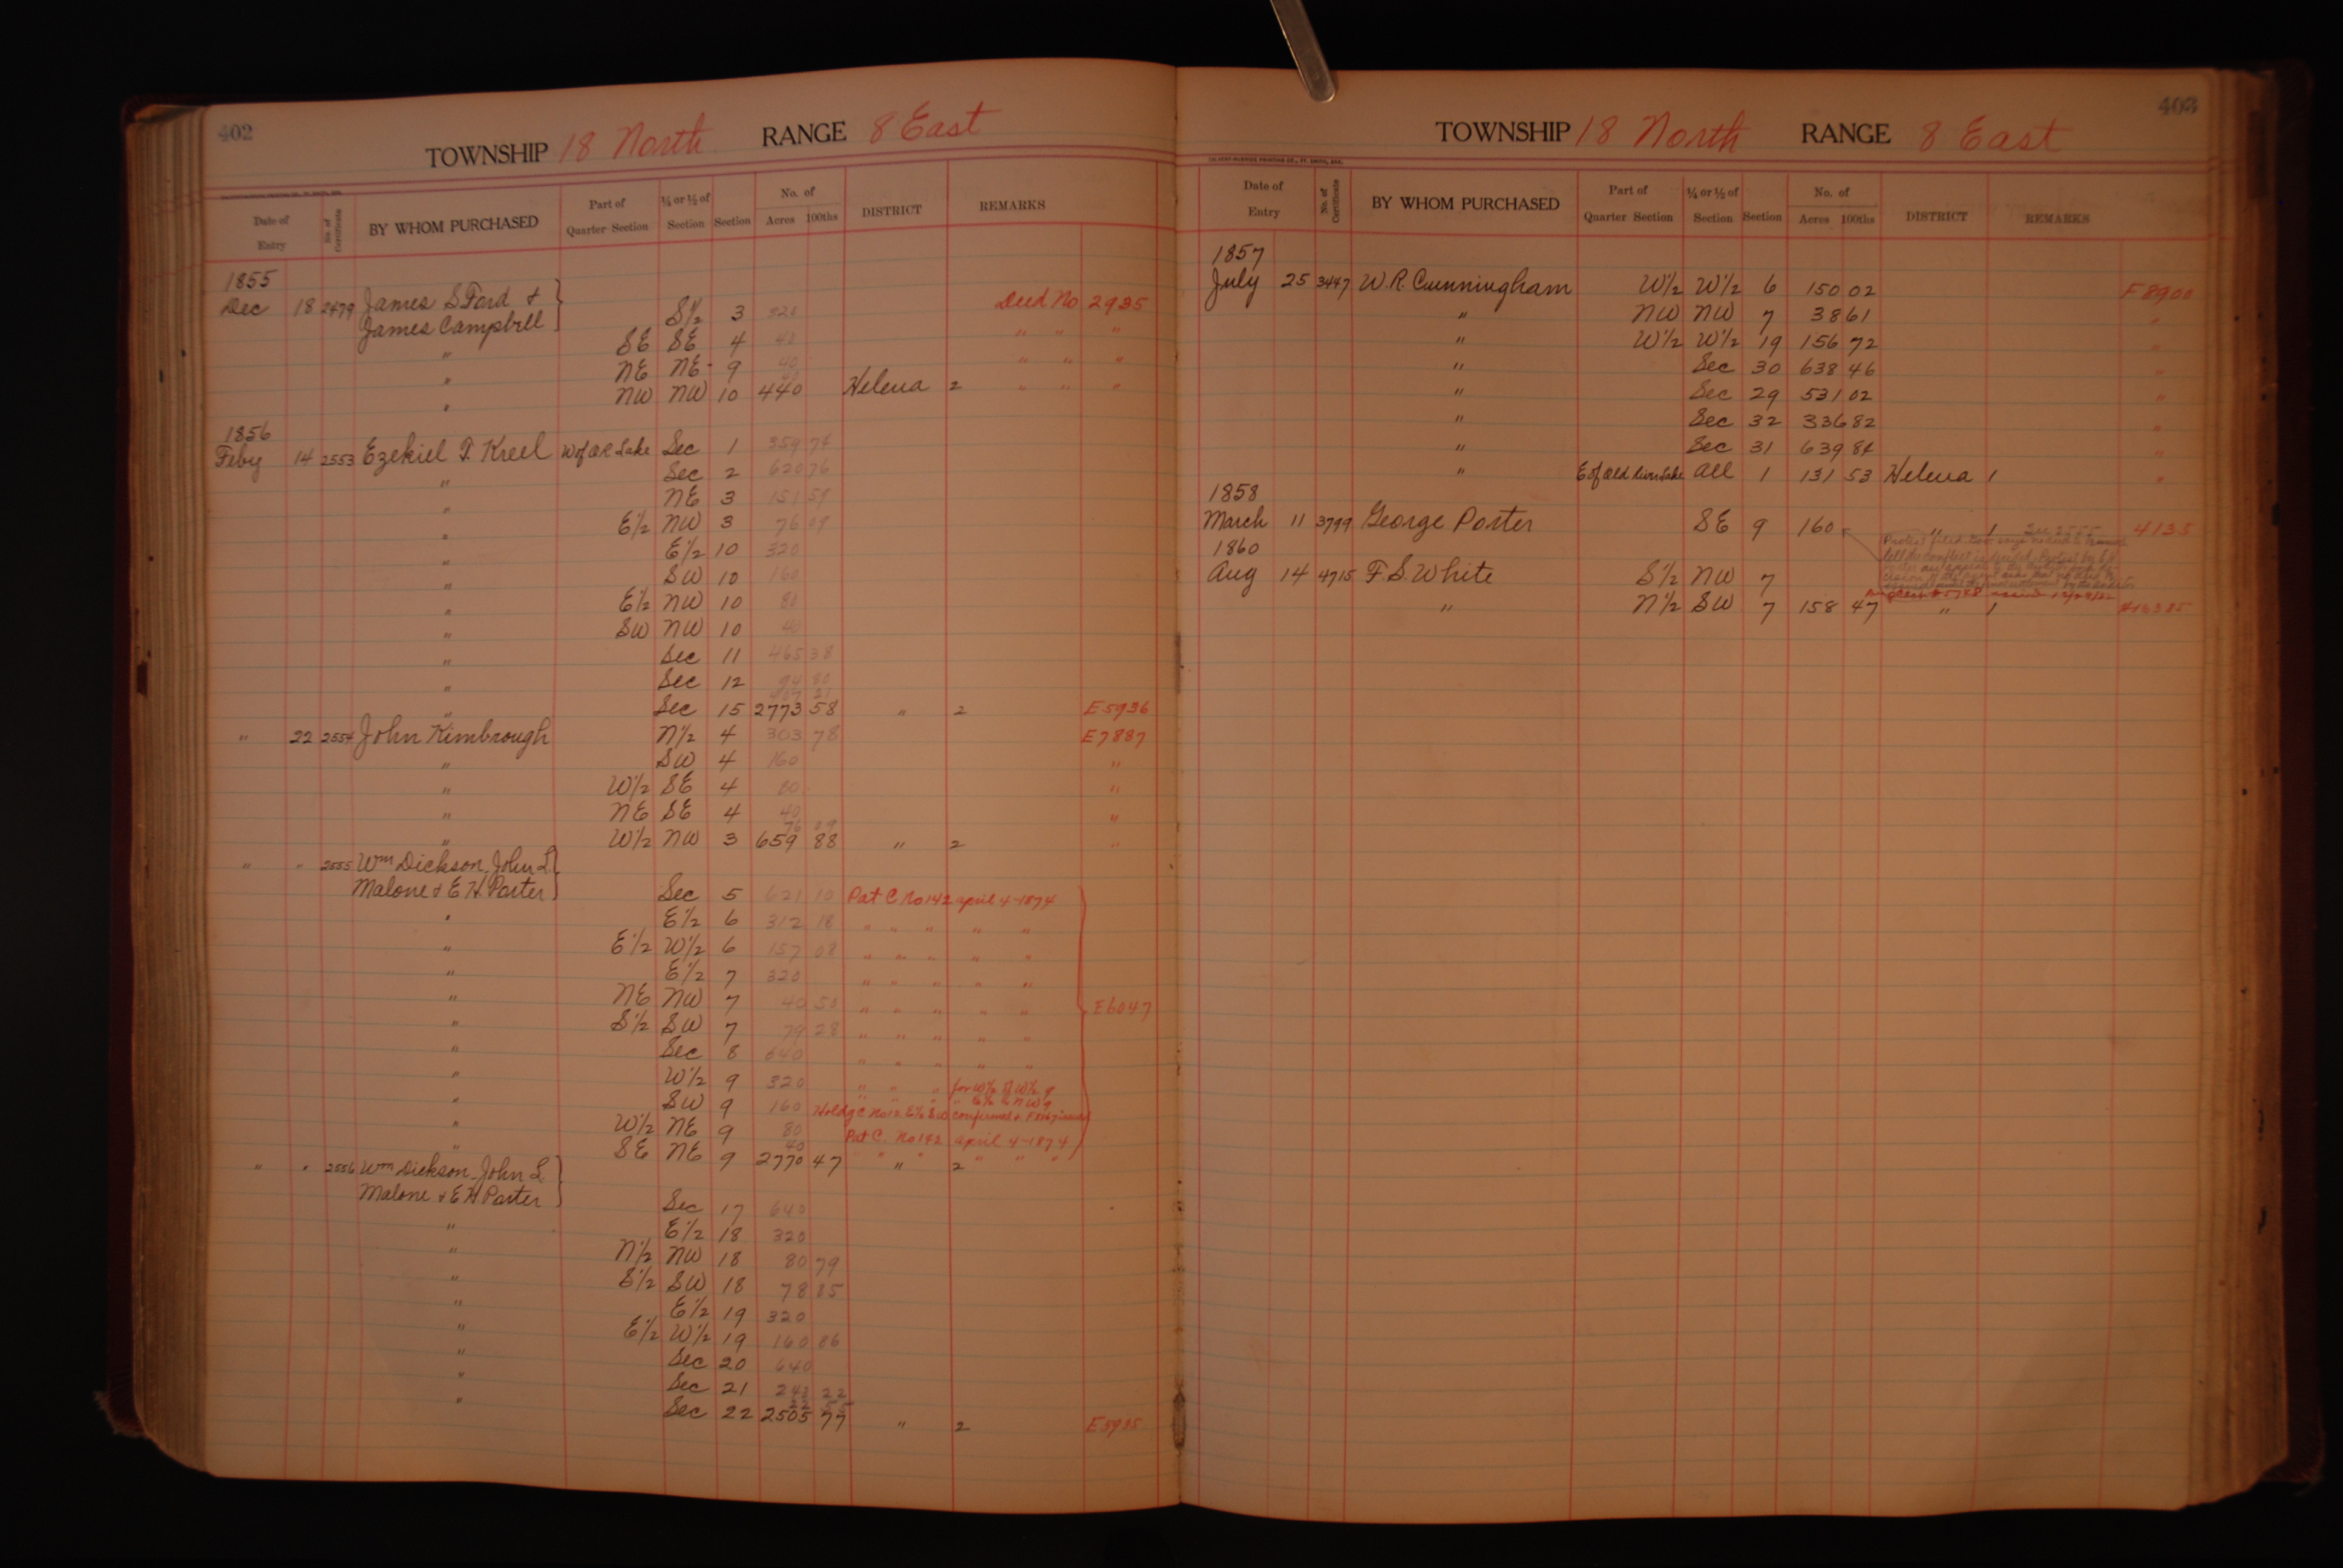 402
TOWNSHIP 18 North RANGE 8 East
Date of Entry No. of Certificate BY WHOM PURCHASED Part of Quarter Section ¼ or ½ of Section Section No. of Acres 100ths DISTRICT REMARKS
1855
Dec 18 2479 James S Ford &
James Campbell } S½ 3 320 Deed No 2935
" SE SE 4 40 " " "
" NE NE 9 40 " " "
" NW NW 10 40 440 Helena 2 " " "
1856
Feby 14 2553 Ezekiel T. Kreel W of OR Lake Sec 1 359 74
" Sec 2 620 76
" NE 3 151 59
" E½ NW 3 76 09
" E½ 10 320
" SW 10 160
" E½ NW 10 80
" SW NW 10 40
" Sec 11 465 38
" Sec 12 94 80
" Sec 15 2773 58 " 2 E5936
" 22 2554 John Kimbrough N½ 4 303 78 E7887
" SW 4 160 "
" W½ SE 4 80 "
" NE SE 4 40 "
" W½ NW 3 76 09 659 88 " 2 "
" " 2555 Wm Dickson, John L
Malone & E H Porter } Sec 5 621 10 Pat C No 142 april 4-1874
" E½ 6 312 18 " " " " "
" E½ W½ 6 157 08 " " " " "
" E½ 7 320 " " " " "
" NE NW 7 40 50 " " " " " E6047
" S½ SW 7 79 28 " " " " "
" Sec 8 640 " " " " "
" W½ 9 320 " " " for W½ of W½ 9
" " " " E½ " NW 9
" SW 9 160 Holdg C No 12 E½ SW confirmed &
" W½ NE 9 80 Pat C. No 142 april 4-1874
" SE NE 9 40 2770 47 " 2 " " "
" " 2556 Wm Dickson, John L
Malone & E H Porter } Sec 17 640
" E½ 18 320
" N½ NW 18 80 79
" S½ SW 18 78 85
" E½ 19 320
" E½ W½ 19 160 86
" Sec 20 640
" Sec 21 242 22
" Sec 22 2505 77 " 2 E5935
403
TOWNSHIP 18 North RANGE 8 East
Date of Entry No. of Certificate BY WHOM PURCHASED Part of Quarter Section ¼ or ½ of Section Section No. of Acres 100ths DISTRICT REMARKS
1857
July 25 3447 W. R. Cunningham W½ W½ 6 150 02 F8900
" NW NW 7 38 61 "
" W½ W½ 19 156 72 "
" Sec 30 638 46 "
" Sec 29 531 02 "
" Sec 32 336 82 "
" Sec 31 639 84 "
" E of Old River Lake all 1 131 53 Helena 1 "
1858
March 11 3799 George Porter SE 9 160 " 1 See 2555 4135
1860
Aug 14 4715 F. S. White S½ NW 7
" N½ SW 7 158 47 " 1 #16385